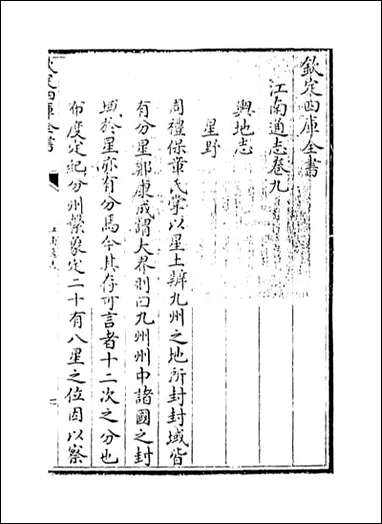 欽定四庫全書
江南通志卷九
輿地志
星野
周禮保章氏掌以星土辨九州之地所封封域皆
有分星鄭康成謂大界則曰九州州中諸國之封
域於星亦有分焉今其存可言者十二次之分也
布度定紀分州繫象定二十有八星之位因以察
欽定四庫全書